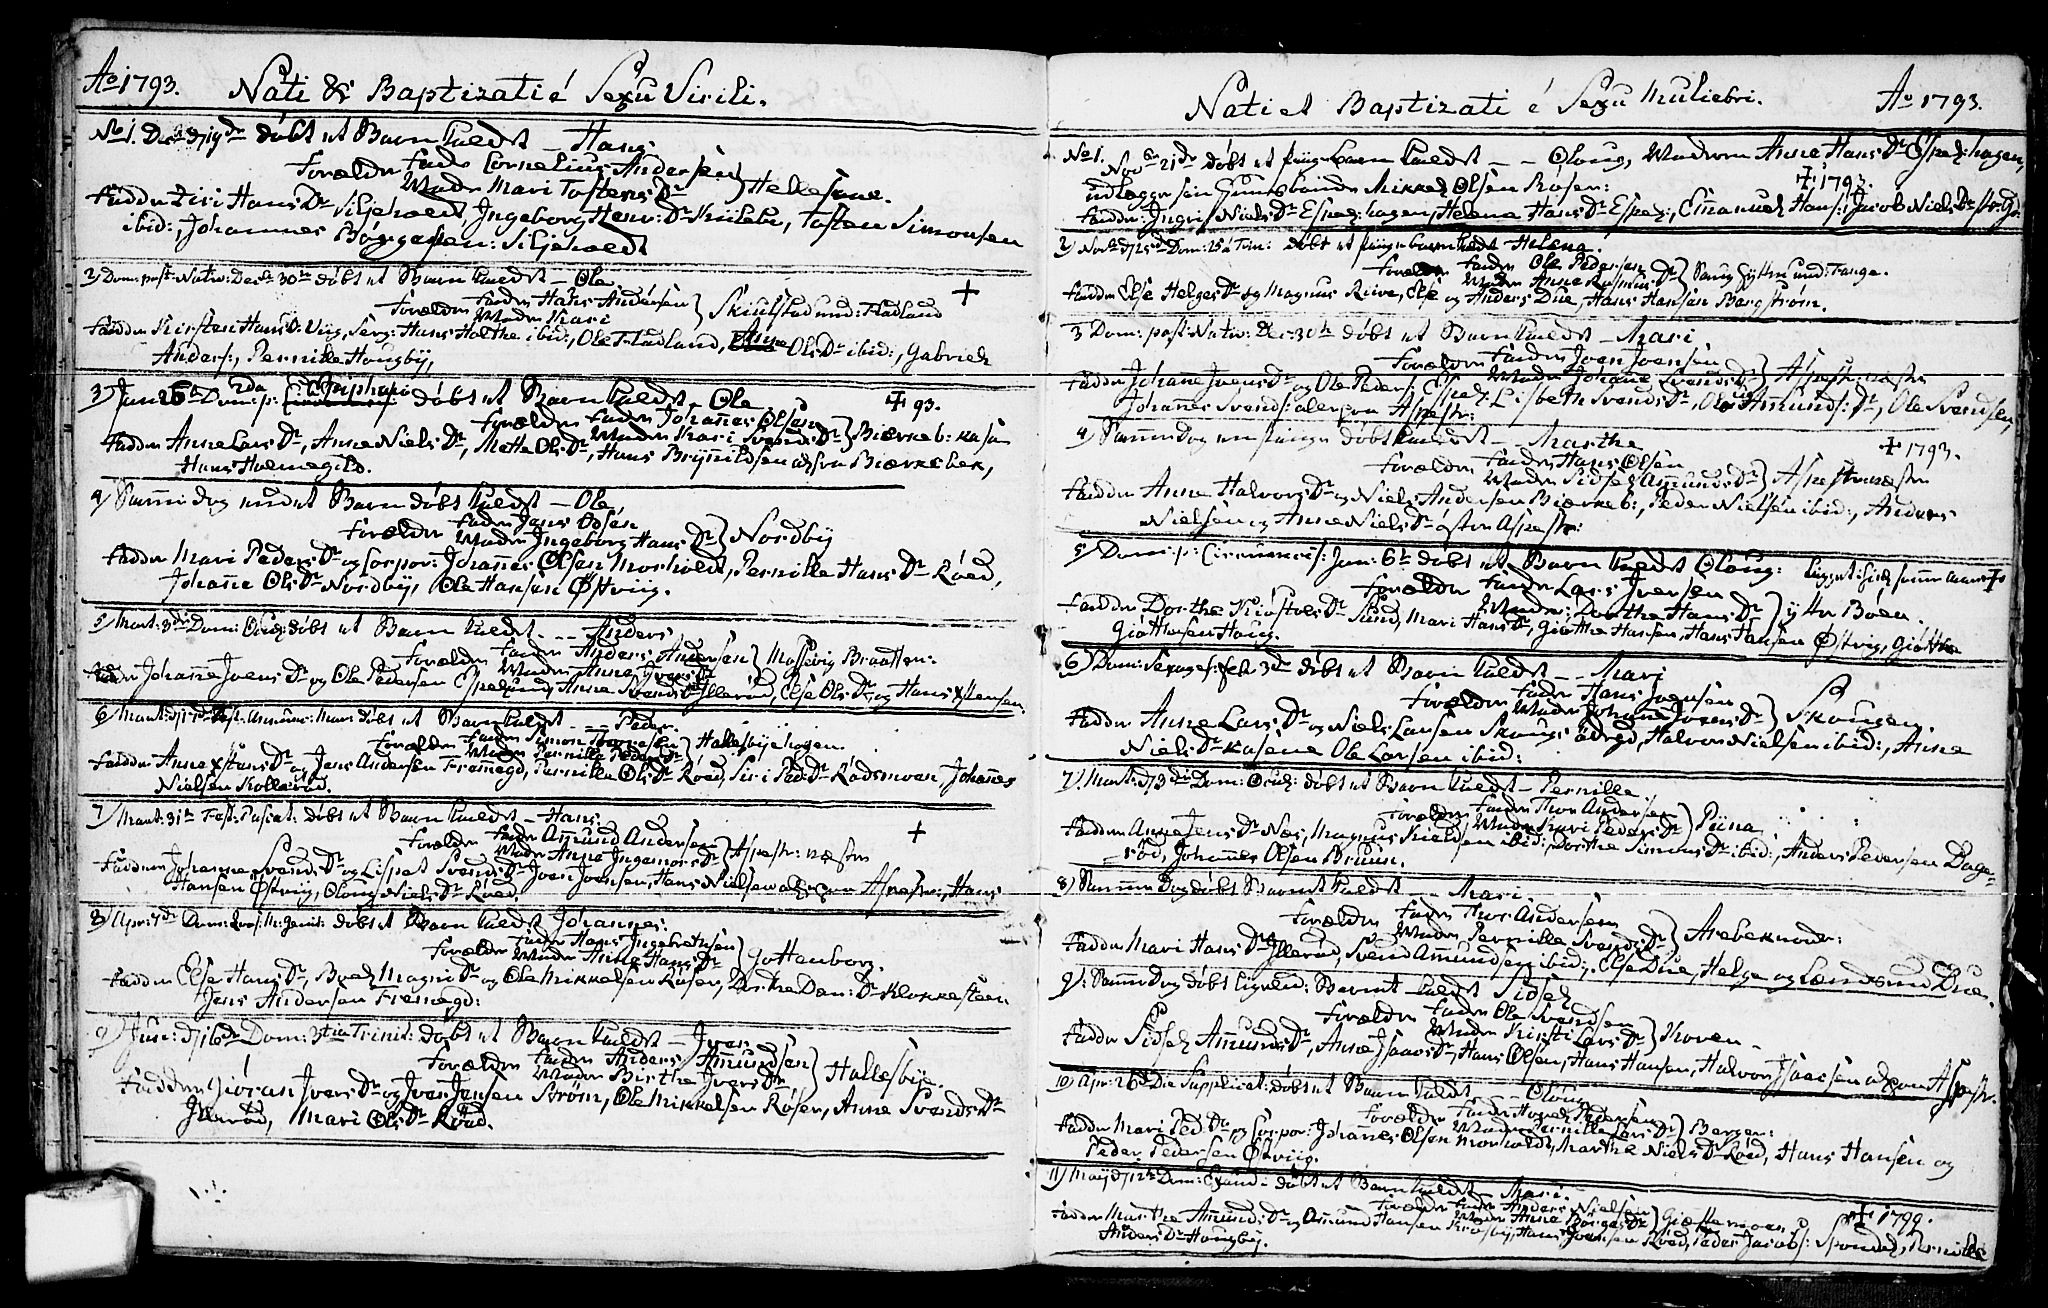 Ao 1793. Nati & Baptizati é Sexu Virili.
No 1. døbt et Barn kaldt – Hans
Forældre Fader Cornelius Andersen
Moder Mari Tostens Dr } Hellesme.
Faddere Siri Hans Dr Siljeholdt, Ingeborg Henr: Dr Knileбu, Tosten Simonsen
ibid:, Johannes Børgesen: Siljeholdt
2) Dom: post: Nativ: Dec: 30te døbt et Barn kaldt – Ole
Forældre Fader Hans Andersen
Moder Kari } Skiulstad und: Fladland +
Faddere Kirsten Hans D: Viig, Hans Holthe ibid:, Ole Fladland, Anne Ols Dr ibid:, Gabriel
Anders:, Pernille Hougbÿ,
3) Jan: døbt et Barn kaldt – Ole ‡ 93.
Forældre Fader Johanes Olsen
Moder Kari Svends Dr } Biærkeb: kasa
Faddere Anne Lars Dr, Anne Niels Dr, Mette Ols Dr, Hans Brÿnildsen Biærkebek,
Hans Holmegild.
4) Samme dag endnu et Barn døbt kaldt – Ole
Forældre Fader Jens Olsen
Moder Ingeborg Hans Dr } Nordbÿ
Faddere Mari Peders Dr og Corpor: Johanes Olsen Morholdt, Pernille Hans Dr Röed,
Johanne Ols Dr Nordbÿ, Ole Hansen Østviig.
5) Mart: 3die Dom: Oculi døbt et Barn kaldt – – Anders
Forældre Fader Anders Andersen
Moder Anne Ivers Dr } Mossevig Braatten:
Johanne Joens Dr og Ole Pedersen Espelund, Anne Svends Dr Illeröd, Else Ols Dr og Hans
6) Mart: Mari døbt et Barn kaldt – – Peder
Forældre Fader Simon
Moder Pernille Peders Dr } Hallesbÿehogen
Faddere Anne og Jens Andersen Fremegd, Pernille Ols Dr Röed, Siri Ped: Dr Rödsmoen, Johannes
Nielsen Kolleröd.
7) Mart: 31te Fest: Pascat: døbt et Barn kaldt – Hans
Forældre Fader Amund Andersen
Moder Anne Ingemors Dr } Aspestr: næstre +
Faddere Johanne Svends Dr og Lisbet Svends Dr Joen Joensen, Hans Nielsen Aspestr:, Hans
Hansen Østvig, Oloug Niels Dr Röed.
8) Apr: 7de døbt et Barn kaldt Johannes:
Forældre Fader Hans Ingebrethsen
Moder Anne Hans Dr } Gottenborg.
Faddere Else Hans Dr, og Ole Mikkelsen Röser, Dorthe Dan: Dr Klokkesteen
Jens Andersen Fremegd:
9) Jun: 16de Dom: 3tia Trinit: døbt et Barn kaldt – Iver
Forældre Fader Anders Amundsen
Moder Birthe Ivers Dr } Hallesbÿe.
Faddere Giöran Ivers Dr og Iver Jensen Ström, Ole Mikkelsen Röser, Anne Svends Dr
Illeröd, Mari Ols Dr Röed.
Nati et Baptizati é Sexu Muliebri. Ao 1793.
No 1. Novr 21de døbt et Barn kaldt – – Oloug, Moderen Anne Hans Dr Espel:hagen,
udlægger Mikkel Olsen Röser: ‡ 1793.
Faddere: Ingrif Niels Dr Espel:hagen, Helena Hans Dr Espel:, Emanuel Hans:, Jacob Niels
2) Nov: 25de Dom: 25 à Trin: døbt et kaldt Helena.
Forældre Fader Ole Pedersen
Moder Anne Rasmus Dr } und: Tange.
Faddere Else Helges Dr og Magnus Riive, Else og Anders Due, Hans Hansen Bergström.
3 Dom: post: Nativ: Dec: 30te døbt et Barn kaldt – Mari
Forældre Fader Joen Joensen
Moder Johane Svends Dr } Aspestr: næstre
Faddere Johanne Joens Dr og Ole Peders: Espel: Lisbeth Svends Dr, Amunds: Dr, Ole Svendsen,
Johanes Svends: Aspestr:
4) Samme Dag døbt kaldt – Marthe ‡ 1793.
Forældre Fader Hans Olsen
Moder Sidsel Amunds Dr } Aspestr næstre
Faddere Anne Halvors Dr og Niels Andersen Biærkeb:, Peder Nielsen ibid:, Anders
Nielsen og Anne Niels Dr østre Aspestr:
5) Dom: p: Circumcis: Jan: 6te døbt et Barn kaldt Oloug: ‡
Forældre Fader Lars Iversen
Moder: Dorthe Hans Dr } ÿttre Böen.
Faddere Dorthe Kiöstvels Dr Sund, Mari Hans Dr, Giöthe Hansen, Hans Hansen Østvig, Giöthe
Giöthesen Houg.
6) Dom: Sexages: Feb 3de døbt et Barn kaldt – – Mari
Forældre Fader Hans Joensen
Moder Johanne Ivers Dr } Skougen
Faddere Anne Lars Dr og Niels Larsen Skougs ödegd, Halvor Nielsen ibid:, Anne
Niels Dr kasene Ole Larsen ibid:
7) Mart: 3die Dom: Ocul: døbt et Barn kaldt – Pernille.
Forældre Fader Thor Andersen
Moder Kari Peders Dr } Piina
Faddere Anne Jens Dr Næs, Magnus Kieldsen ibid:, Dorthe Simons Dr ibid:, Anders Pedersen Dager-
röd, Johannes Olsen Bruun.
8) Samme Dag døbt Barnet kaldt – Mari.
Forældre Fader Thor Andersen
Moder Pernille Svends Dr } Arebeknordr:
Faddere Mari Hans Dr Illeröd, Svend Amundsen ibid:, Else Due, Helge og Due.
9) Samme Dag døbt Barnet kaldt Sidsel
Forældre Fader Ole Svendsen
Moder Kirsti Lars Dr } Koven –
Faddere Sidsel Amunds Dr, Anne Isaacs Dr, Hans Olsen, Hans Hansen, Halvor Isaacsen Aspestr.
10) Apr: 26de Die Supplicat: døbt et Barn kaldt – Oloug
Forældre Fader Pedersen
Moder Pernille Lars Dr } Bergen:
Faddere Mari Ped: Dr og Corpor: Johanes Olsen Morholdt, Marthe Niels Dr Röed, Hans Hansen og
Peder Pedersen Østviig.
11) Maÿ 12te Dom: Exaud: døbt et Barn kaldt – Mari.
Forældre Fader Anders Nielsen
Moder Anne Börges Dr } Giættemoen ‡ 1799.
Faddere Marthe Amund: Dr og Amund Hansen Krosbÿ, Hans Joensen Röed, Peder Jacobs: Spondal, Pernille
Anders Dr Hougbÿ.